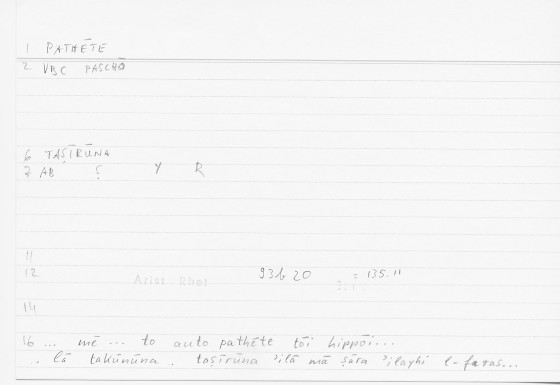 1 PATHĒTE
2 VBC PASCHŌ
6 TAṢĪRŪNA
7 AB Ṣ Y R
11
12 Arist Rhet 93b 20 = 135.11
14
16 ... mē ... to auto pathēte tōi hippōi...
.. lā takūnūna . taṣīrūna ʾilā mā ṣāra ʾilayhi l-faras...